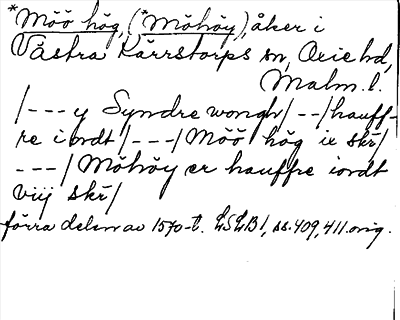 *Möö hög, (*Möhöy), åker i
Västra Kärrstorps sn, Oxie hd,
Malm. l.
/---y Syndre wongh/--/hauff-
re iordt/---/Möö hög ix skr/
---/Möhöy er hauffre iordt
viij skr/
förra delen av 1570-t. LSLB I, ss. 409, 411. orig.